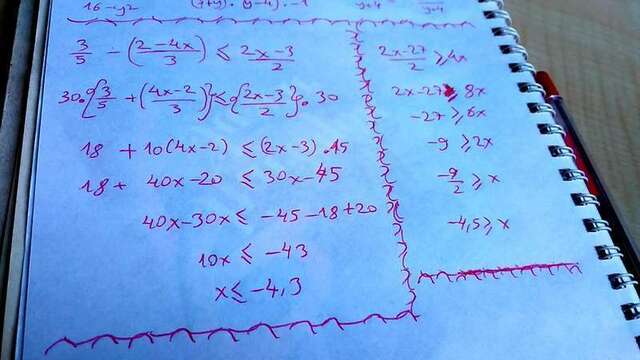 16-y²
3/5 - (2-4x/3) ≤ 2x-3/2
30·{3/5 + (4x-2/3)} ≤ {2x-3/2}·30
18 + 10(4x-2) ≤ (2x-3)·15
18+ 40x-20 ≤ 30x-45
40x-30x ≤ -45-18+20
10x ≤ -43
x ≤ -4,3
2x-27/2 ≥ 4x
2x-27 ≥ 8x
-27 ≥ 6x
-9 ≥ 2x
-9/2 ≥ x
-4,5 ≥ x